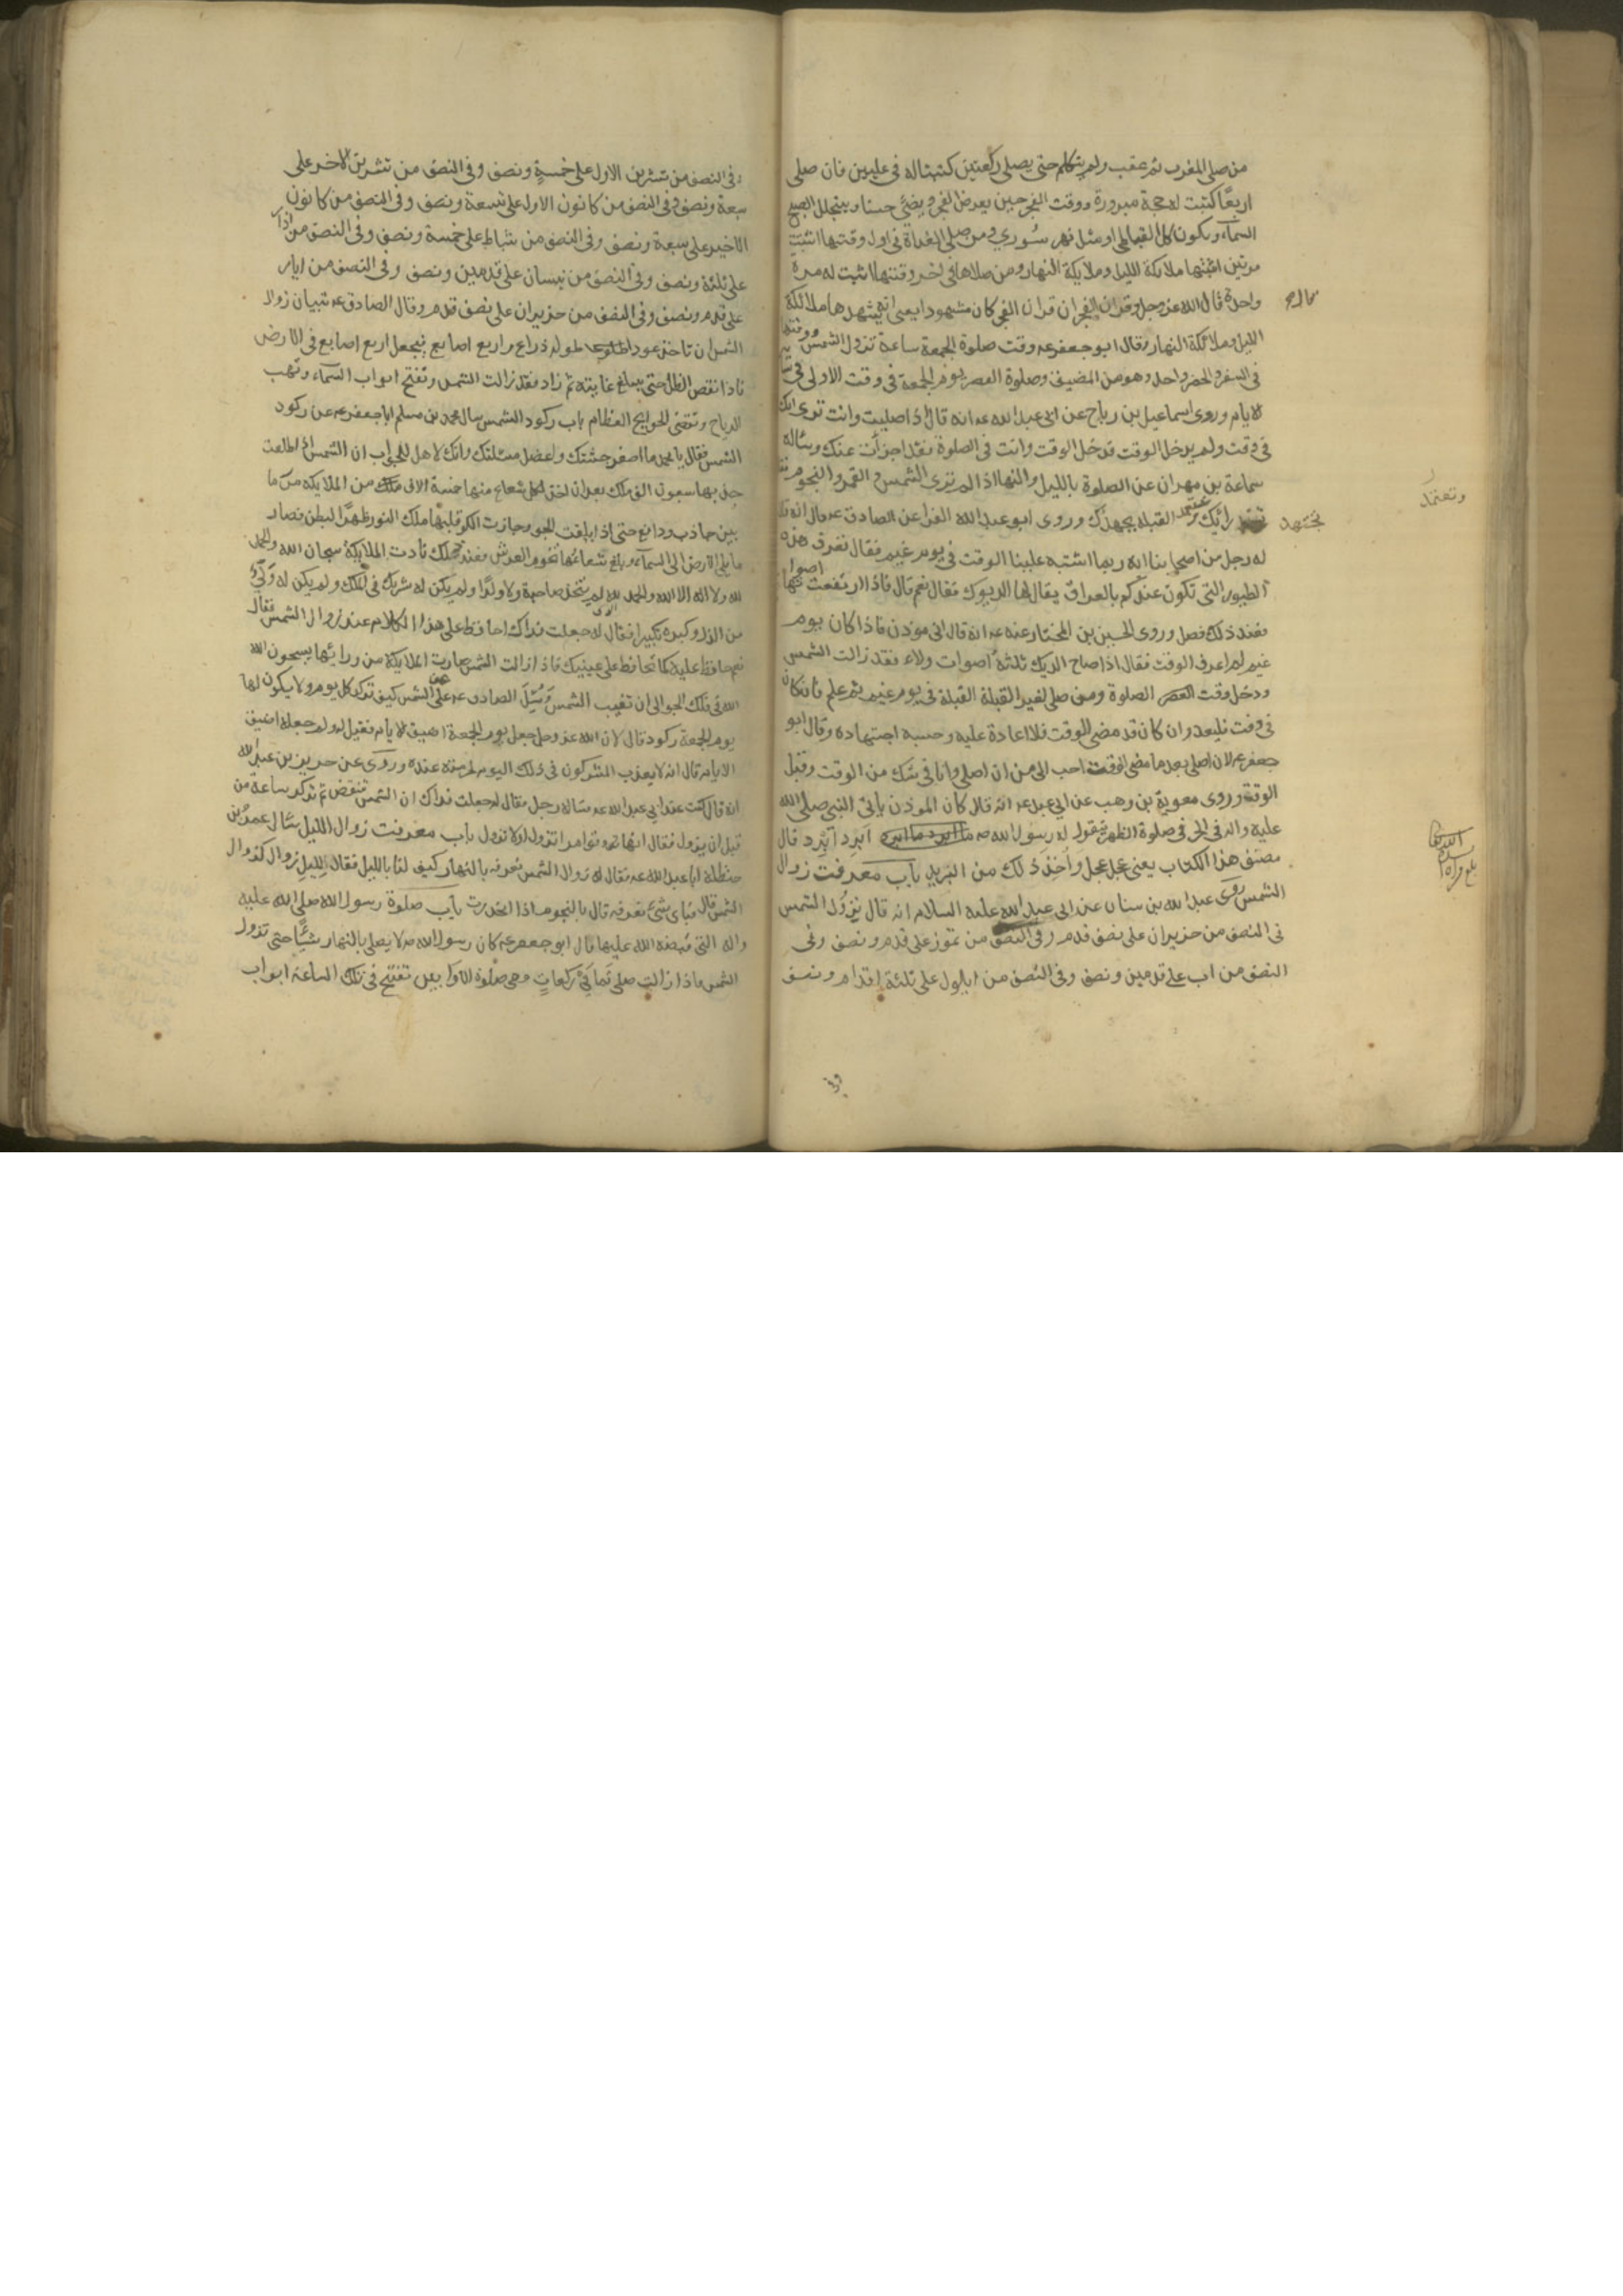 من صلى المغرب ثم عقب ولم يتكلم حتى يصلي ركعتين كتبتا له في عليين فان صلى
اربعًا كتبت له حجة مبرورة ووقت الفجر حين يعرض الفجر ويضيء حسنا ويتجلل الصبح
السماء ويكون كالقباطي او مثل نهر سُوري ومن صلى الغداة في اول وقتها اثبتت
مرتين اثبتها ملائكة الليل وملايكة النهار ومن صلاها في اخر وقتها اثبت له مرة
واحدة قال الله عز وجل وقران الفجر ان قران الفجر كان مشهودا يعني انه يشهدها ملائكة
الليل وملائكة النهار وقال ابو جعفر عم وقت صلوة الجمعة ساعة تزول الشمس ووقتها
في السفر والحضر واحد وهو من المضيق وصلوة العصر يوم الجمعة في وقت الاولى في سا
الايام وروى اسماعيل بن رياح عن ابي عبد الله عم انه قال اذا صليت وانت ترى انك
في وقت ولم يدخل الوقت فدخل الوقت وانت في الصلوة فقد اجزأت عنك وسئاله
سماعة بن مهران عن الصلوة بالليل والنهار اذا لم ترى الشمس و القمر والنجوم فقا
تجتهد رايك وتعتمد القبلة بجهدك وروى ابو عبد الله الفراء عن الصادق عم قال انه قا
وتعتمد
له رجل من اصحابنا انه ربما اشتبه علينا الوقت في يوم غيم فقال تعرف هذه
الطيور التي تكون عندكم بالعراق يقال لها الديوك فقال نعم قال فاذا ارتفعت اصواتها
فعند ذلك فصل وروى الحسين بن المختار عنه عم انه قال اني موذن فاذا كان يوم
غيم لم اعرف الوقت فقال اذا صاح الديك ثلثة اصوات ولاء فقد زالت الشمس
ودخل وقت الصلوة ومن صلى لغير القبلة القبلة في يوم غيم ثم علم فان كان
في وقت فليعد وان كان قد مضى الوقت فلا اعادة عليه وحسبه اجتهاده وقال ابو
جعفر عم لان اصلي بعد ما مضى الوقت احب الى من ان اصلي وانا في شك من الوقت وقبل
الوقت وروى معوية بن وهب عن ابي عبد الله عم انه قال كان الموذن ياتي النبي صلى الله
عليه واله في الحر في صلوة الظهر فيقول له رسول الله صم ابرد ابرد قال
مصنف هذا الكتاب يعني عجل عجل واخذ ذلك من التبريد باب معرفت زوال
الشمس روى عبد الله بن سنان عن ابي عبد الله عليه السلام انه قال تزول الشمس
في النصف من حزيران على نصف قدم وفي النصف من تموز على قدم ونصف وفي
النصف من اب على قدمين ونصف وفي النصف من ايلول على ثلثة اقدام ونصف
وفي النصف من تشرين الاول على خمسةٍ ونصف وفي النصف من تشرين الاخر على
سبعة ونصف وفي النصف من كانون الاول على تسعة ونصف وفي النصف من كانون
الاخير على سبعة ونصف وفي النصف من شباط على خمسة ونصف وفي النصف من اذار
على ثلثة ونصف وفي النصف من نيسان على قدمين ونصف وفي النصف من ايار
على قدم ونصف وفي النصف من حزيران على نصف قدم وقال الصادق عم تبيان زوال
الشمس ان تاخذ عودا طوله ذراع واربع اصابع فيجعل اربع اصابع في الارض
فاذا نقص الظل حتى يبلغ غايته ثم زاد فقد زالت الشمس وتفتح ابواب السماء وتهب
الرياح وتقضى الحوايج العظام باب ركود الشمس سال محمد بن مسلم ابا جعفر عم عن ركود
الشمس فقال يا محمد ما اصغر جثتك واعضل مسئلتك وانك لاهل للجواب ان الشمس اذا طلعت
جذبها سبعون الف ملك بعد ان اخذ بكل شعاع منها خمسة الاف من الملايكة من ما
بين جاذب ودافع حتى اذا بلغت الجو وجازت الكو قلبها ملك النور ظهرًا لبطن فصار
ما يلي الارض الى السماء وبلغ شعاعها تخوم العرش فعند ذلك نادت الملايكة سبحان الله والحمد
لله ولا اله الا الله والحمد لله الذي لم يتخذ صاحبة ولا ولدًا ولم يكن له شريك في الملك ولم يكن له وَلِيٌّ
من الذل وكبره تكبيرا فقال له جعلت فداك احافظ على هذا الكلام عند زوال الشمس فقال
نعم حافظ عليه كما تحافظ على عينيك فاذا زالت الشمس صارت الملايكة من ورائها يسبحون الله
في فلك الجو الى ان تغيب الشمس وَسُئِلَ الصادق عم عن الشمس كيف تركد كل يوم ولا يكون لها
يوم الجمعة ركود قال لان الله عز وجل جعل يوم الجمعة اضيق الايام فقيل له ولم جعله اضيق
الايام قال انه لا يعذب المشركون في ذلك اليوم لحرمته عنده وروى عن حريز بن عبد الله
انه قال كنت عند ابي عبد الله عم فساله رجل فقال له جعلت فداك ان الشمس تنقض ثم تركد ساعة من
قبل ان يزول فقال انها تؤامر اتزول او لا تزول باب معرفت زوال الليل سال عمر بن
حنظلة ابا عبد الله عم فقال له زوال الشمس نعرفه بالنهار كيف لنا بالليل فقال لليل زوال كزوال
الشمس قال فباي شيء نعرفه قال بالنجوم اذا انحدرت باب صلوة رسول الله صلى الله عليه
واله التي قبضه الله عليها قال ابو جعفر عم كان رسول الله صم لا يصلي بالنهار شيئًا حتى تزول
الشمس فاذا زالت صلى ثماني ركعاتٍ وهي صلوة الاوابين تفتح في تلك الساعة ابواب